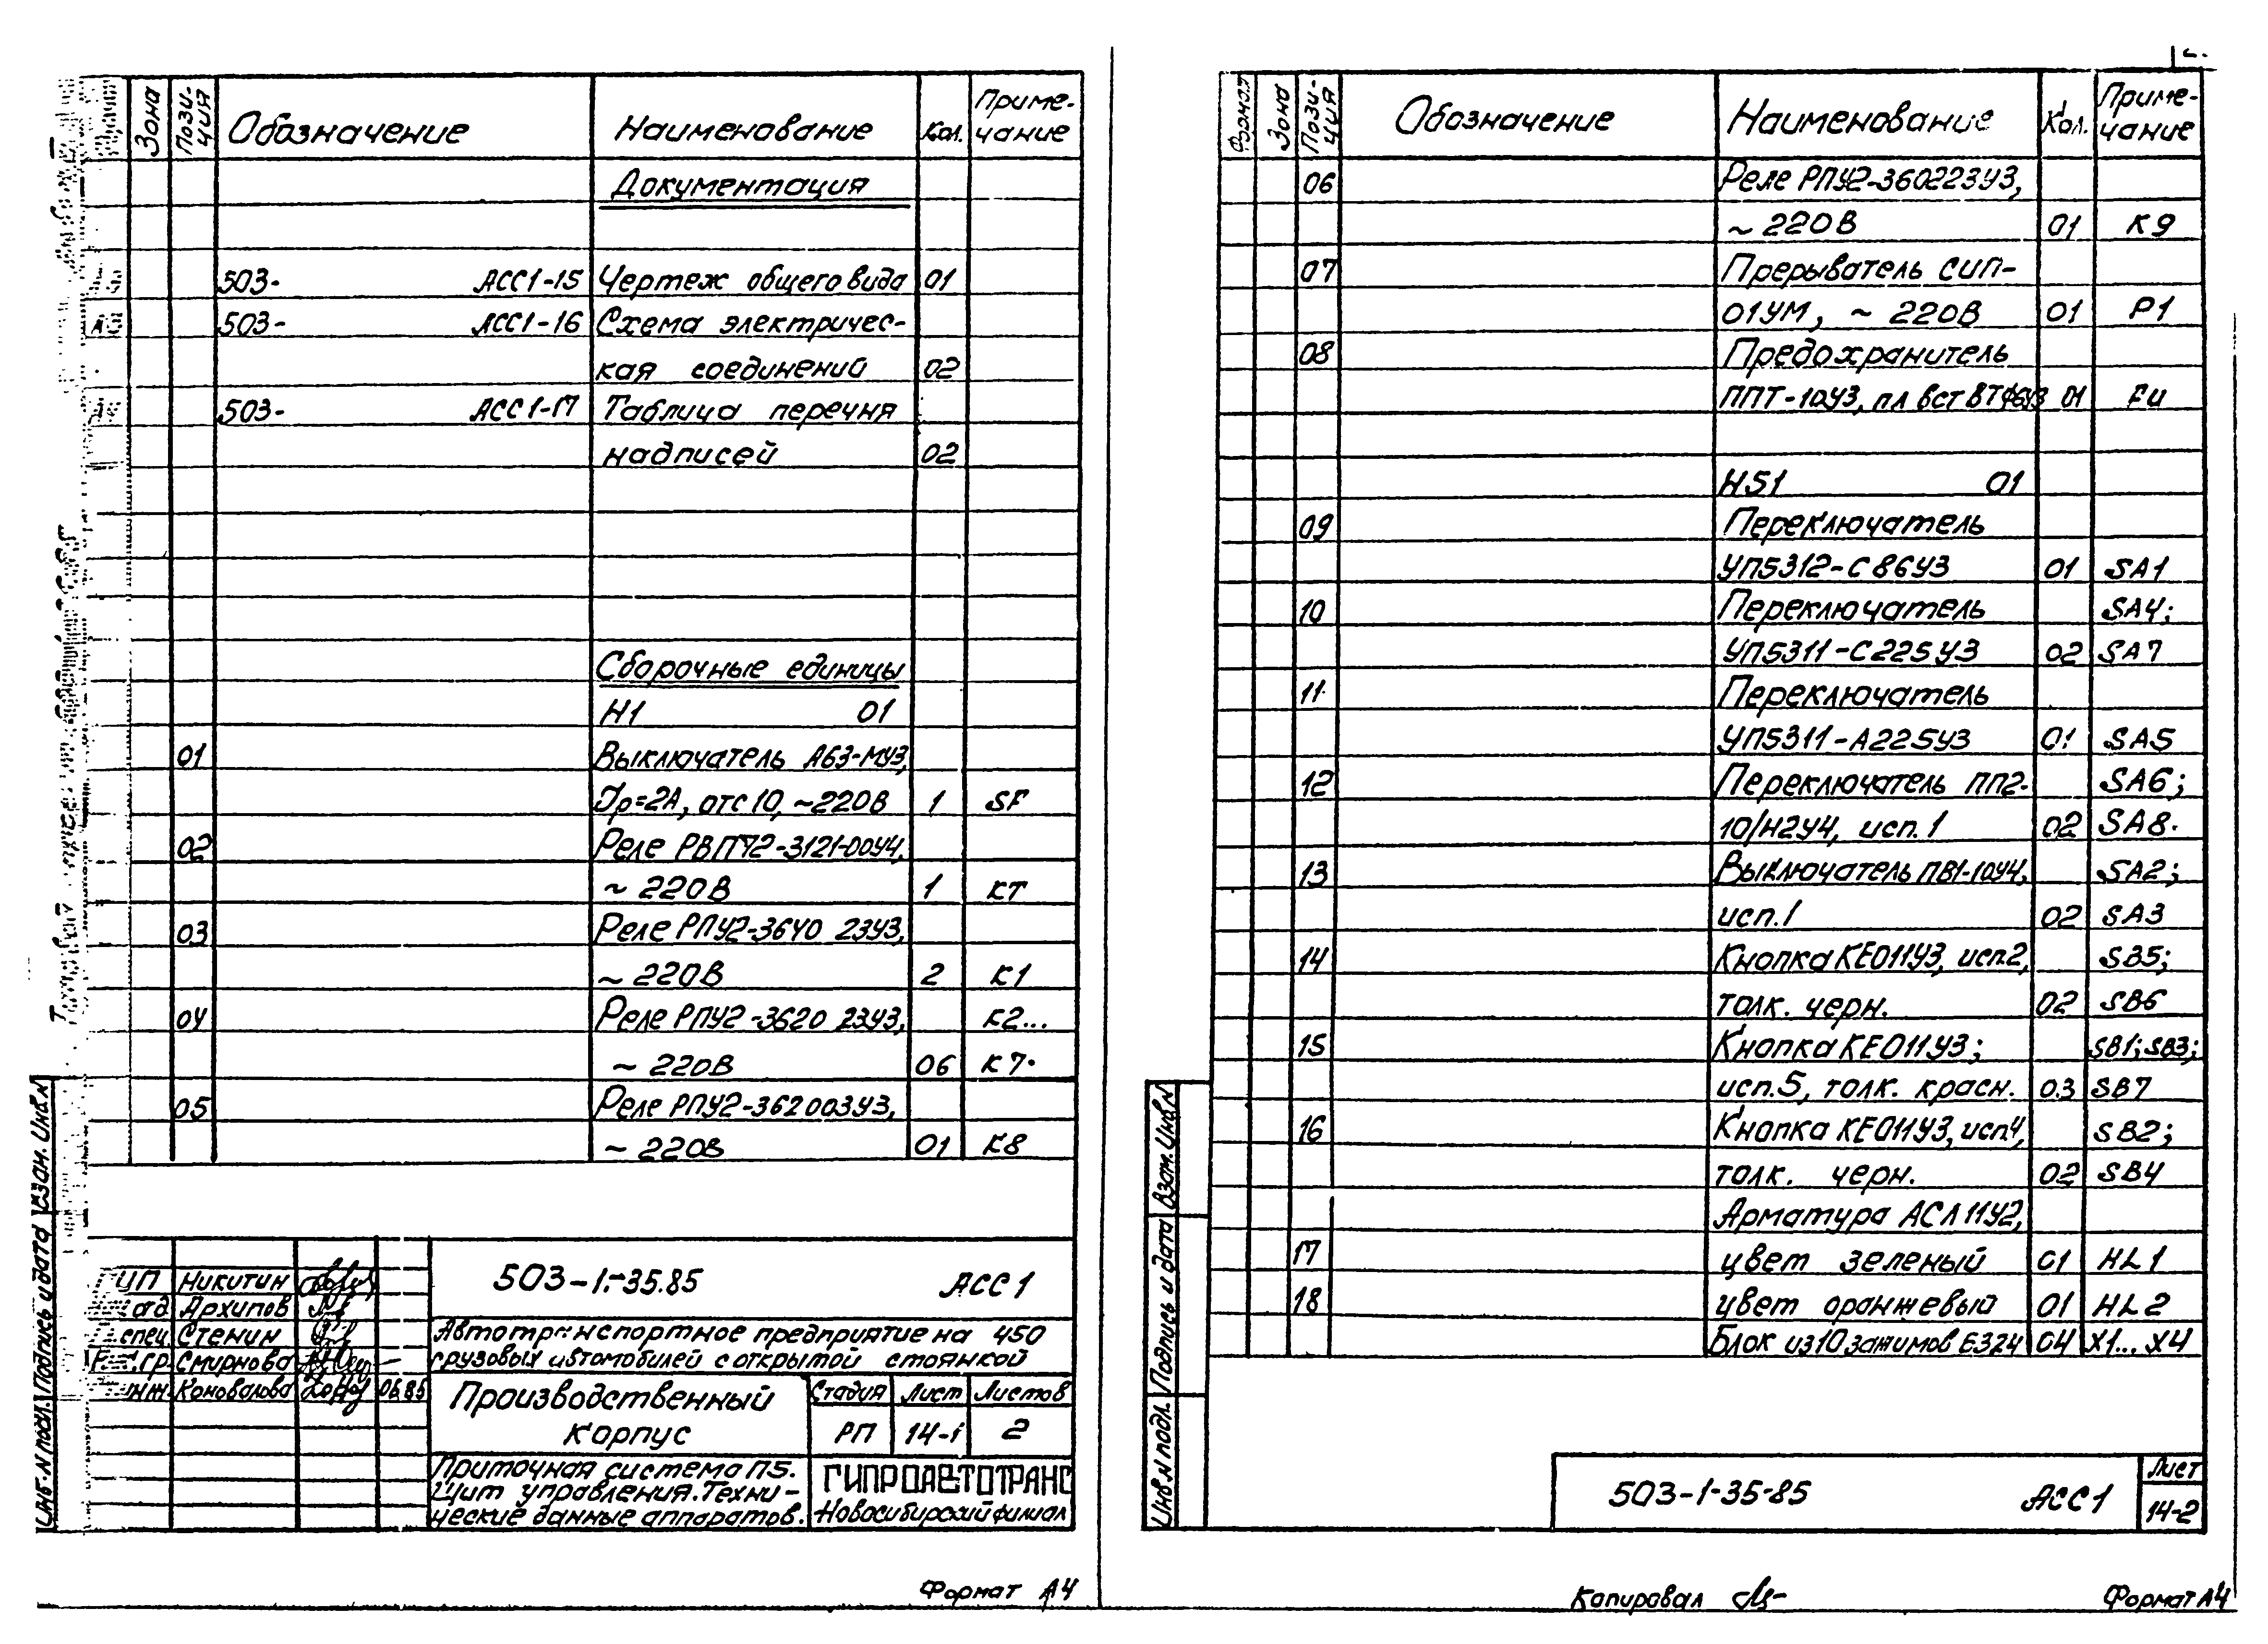 Зона Пози- ция Обозначение Наименование Кол. Приме- чание
Документация
503- АСС1-15 Чертеж общего вида 01
А3 503- АСС1-16 Схема электричес-
кая соединений 02
503- АСС1-17 Таблица перечня
надписей 02
Сборочные единицы
Н1 01
01 Выключатель А63-МУ3,
Iр=2А, отс 10, ~220В 1 SF
02 Реле РВП72-3121-00У4,
~ 220В 1 КТ
03 Реле РПУ2-3640 23У3,
~ 220В 2 К1
04 Реле РПУ2-3620 23У3, К2...
~ 220В 06 К7.
05 Реле РПУ2-362003У3,
~ 220В 01 К8
503-1-35.85 АСС1
ГИП Никитин
Архипов
спец Стенин
гр. Смирнова
инж. Коновалова 06.85
Автотранспортное предприятие на 450
грузовых автомобилей с открытой стоянкой
Производственный
корпус
Стадия Лист Листов
РП 14-1 2
Приточная система П5.
Щит управления. Техни-
ческие данные аппаратов.
ГИПРОАВТОТРАНС
Новосибирский филиал
Инв. N подл. Подпись и дата Взам. Инв. N
Формат А4
Формат Зона Пози- ция Обозначение Наименование Кол. Приме- чание
06 Реле РПУ2-360223У3,
~ 220В 01 К9
07 Прерыватель СИП-
01УМ, ~ 220В 01 Р1
08 Предохранитель
ППТ-10У3, пл вст 01 FU
HS1 01
09 Переключатель
УП5312-С86У3 01 SA1
10 Переключатель SA4;
УП5311-С225У3 02 SA7
11 Переключатель
УП5311-А225У3 01 SA5
12 Переключатель ПП2- SA6;
10/Н2У4, исп. 1 02 SA8.
13 Выключатель ПВ1-10У4, SA2;
исп. 1 02 SA3
14 Кнопка КЕ011У3, исп2, SB5;
толк. черн. 02 SB6
15 Кнопка КЕ011У3; SB1; SB3;
исп. 5, толк. красн. 03 SB7
16 Кнопка КЕ011У3, исп4, SB2;
толк. черн. 02 SB4
Арматура АСЛ11У2,
17 цвет зеленый 01 HL1
18 цвет оранжевый 01 HL2
Блок из 10 зажимов Б324 04 X1... X4
Инв. N подл. Подпись и дата Взам. Инв. N
503-1-35-85 АСС1
Лист
14-2
Копировал
Формат А4